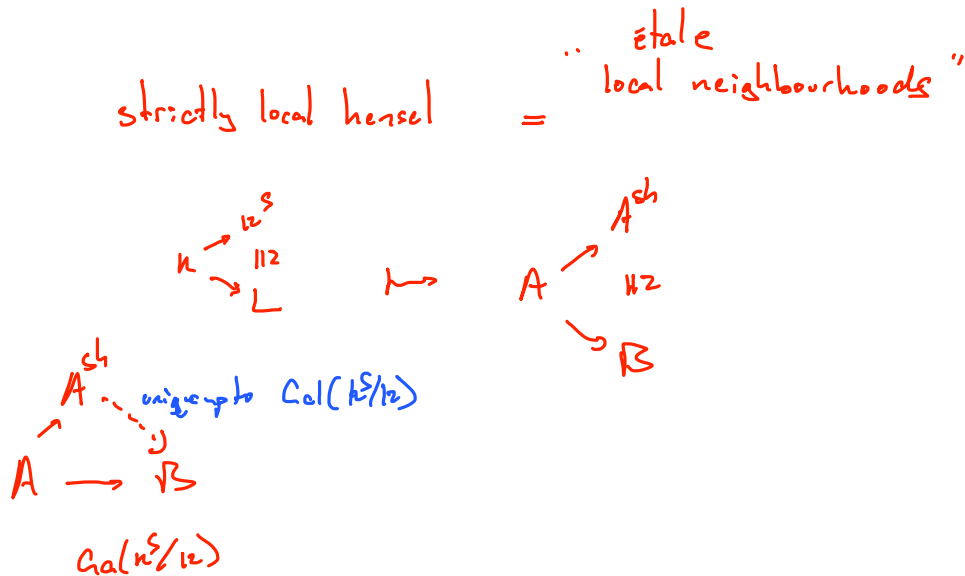 " étale
strictly local hensel = local neighbourhoods "
k → k^s
≅
k → L
↦
A → A^sh
≅
A → B
A^sh
unique up to Gal(k^s/k)
A → B
Gal(k^s/k)